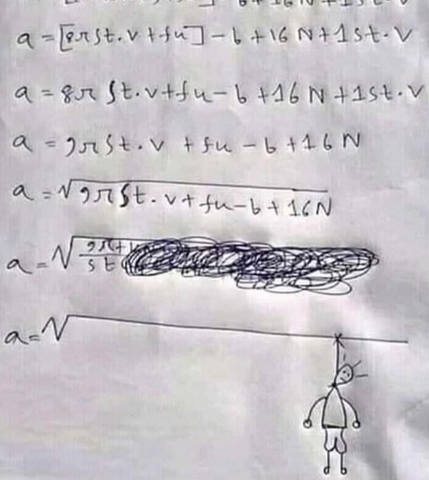 a = [8π St.v + fu] - b + 16 N + 1 St.v
a = 8π St.v + fu - b + 16 N + 1 St.v
a = 9π St.v + fu - b + 16 N
a = √9π St.v + fu - b + 16 N
a = √
a = √